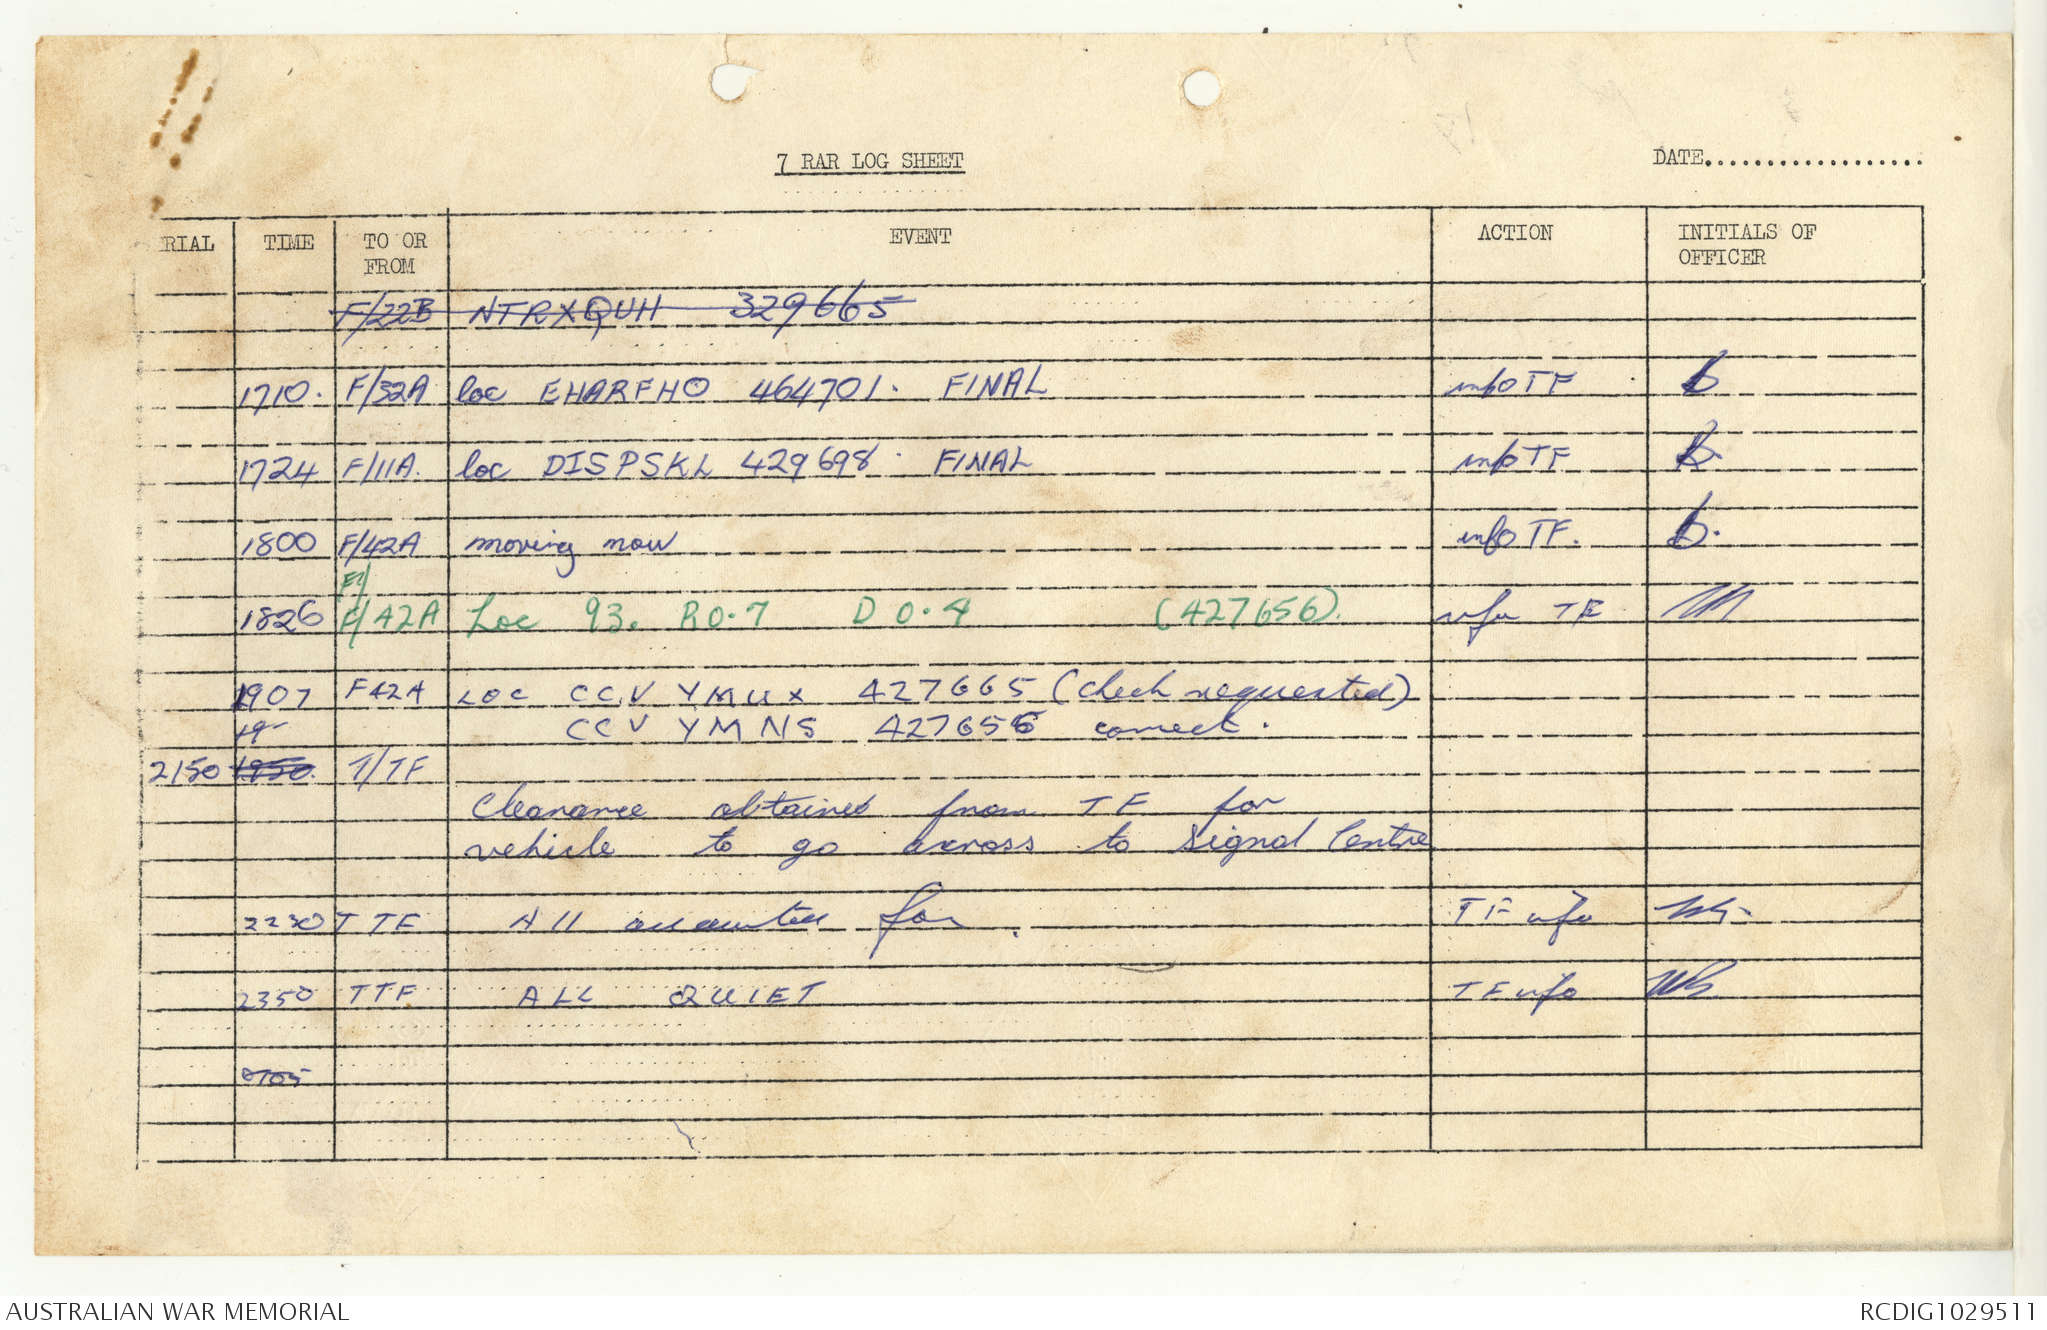 7 RAR LOG SHEET
DATE...................
RIAL TIME TO OR FROM EVENT ACTION INITIALS OF OFFICER
F/22B NTRXQUH 329665
1710. F/32A loc EHARFHO 464701. FINAL info TF
1724 F/11A. loc DISPSKL 429698. FINAL info TF
1800 F/42A moving now info TF.
F/
1826 F/42A Loc 93. R0.7 D 0.4 (427656). info TF
1907 F42A LOC CCV YMUX 427665 (check requested)
19 CCV YMNS 427656 correct.
2150 1950. T/TF
Clearance obtained from TF for
vehicle to go across to Signal Centre
2230 T TF All accounted for. TF info
2350 TTF ALL QUIET TF info
0105
AUSTRALIAN WAR MEMORIAL
RCDIG1029511